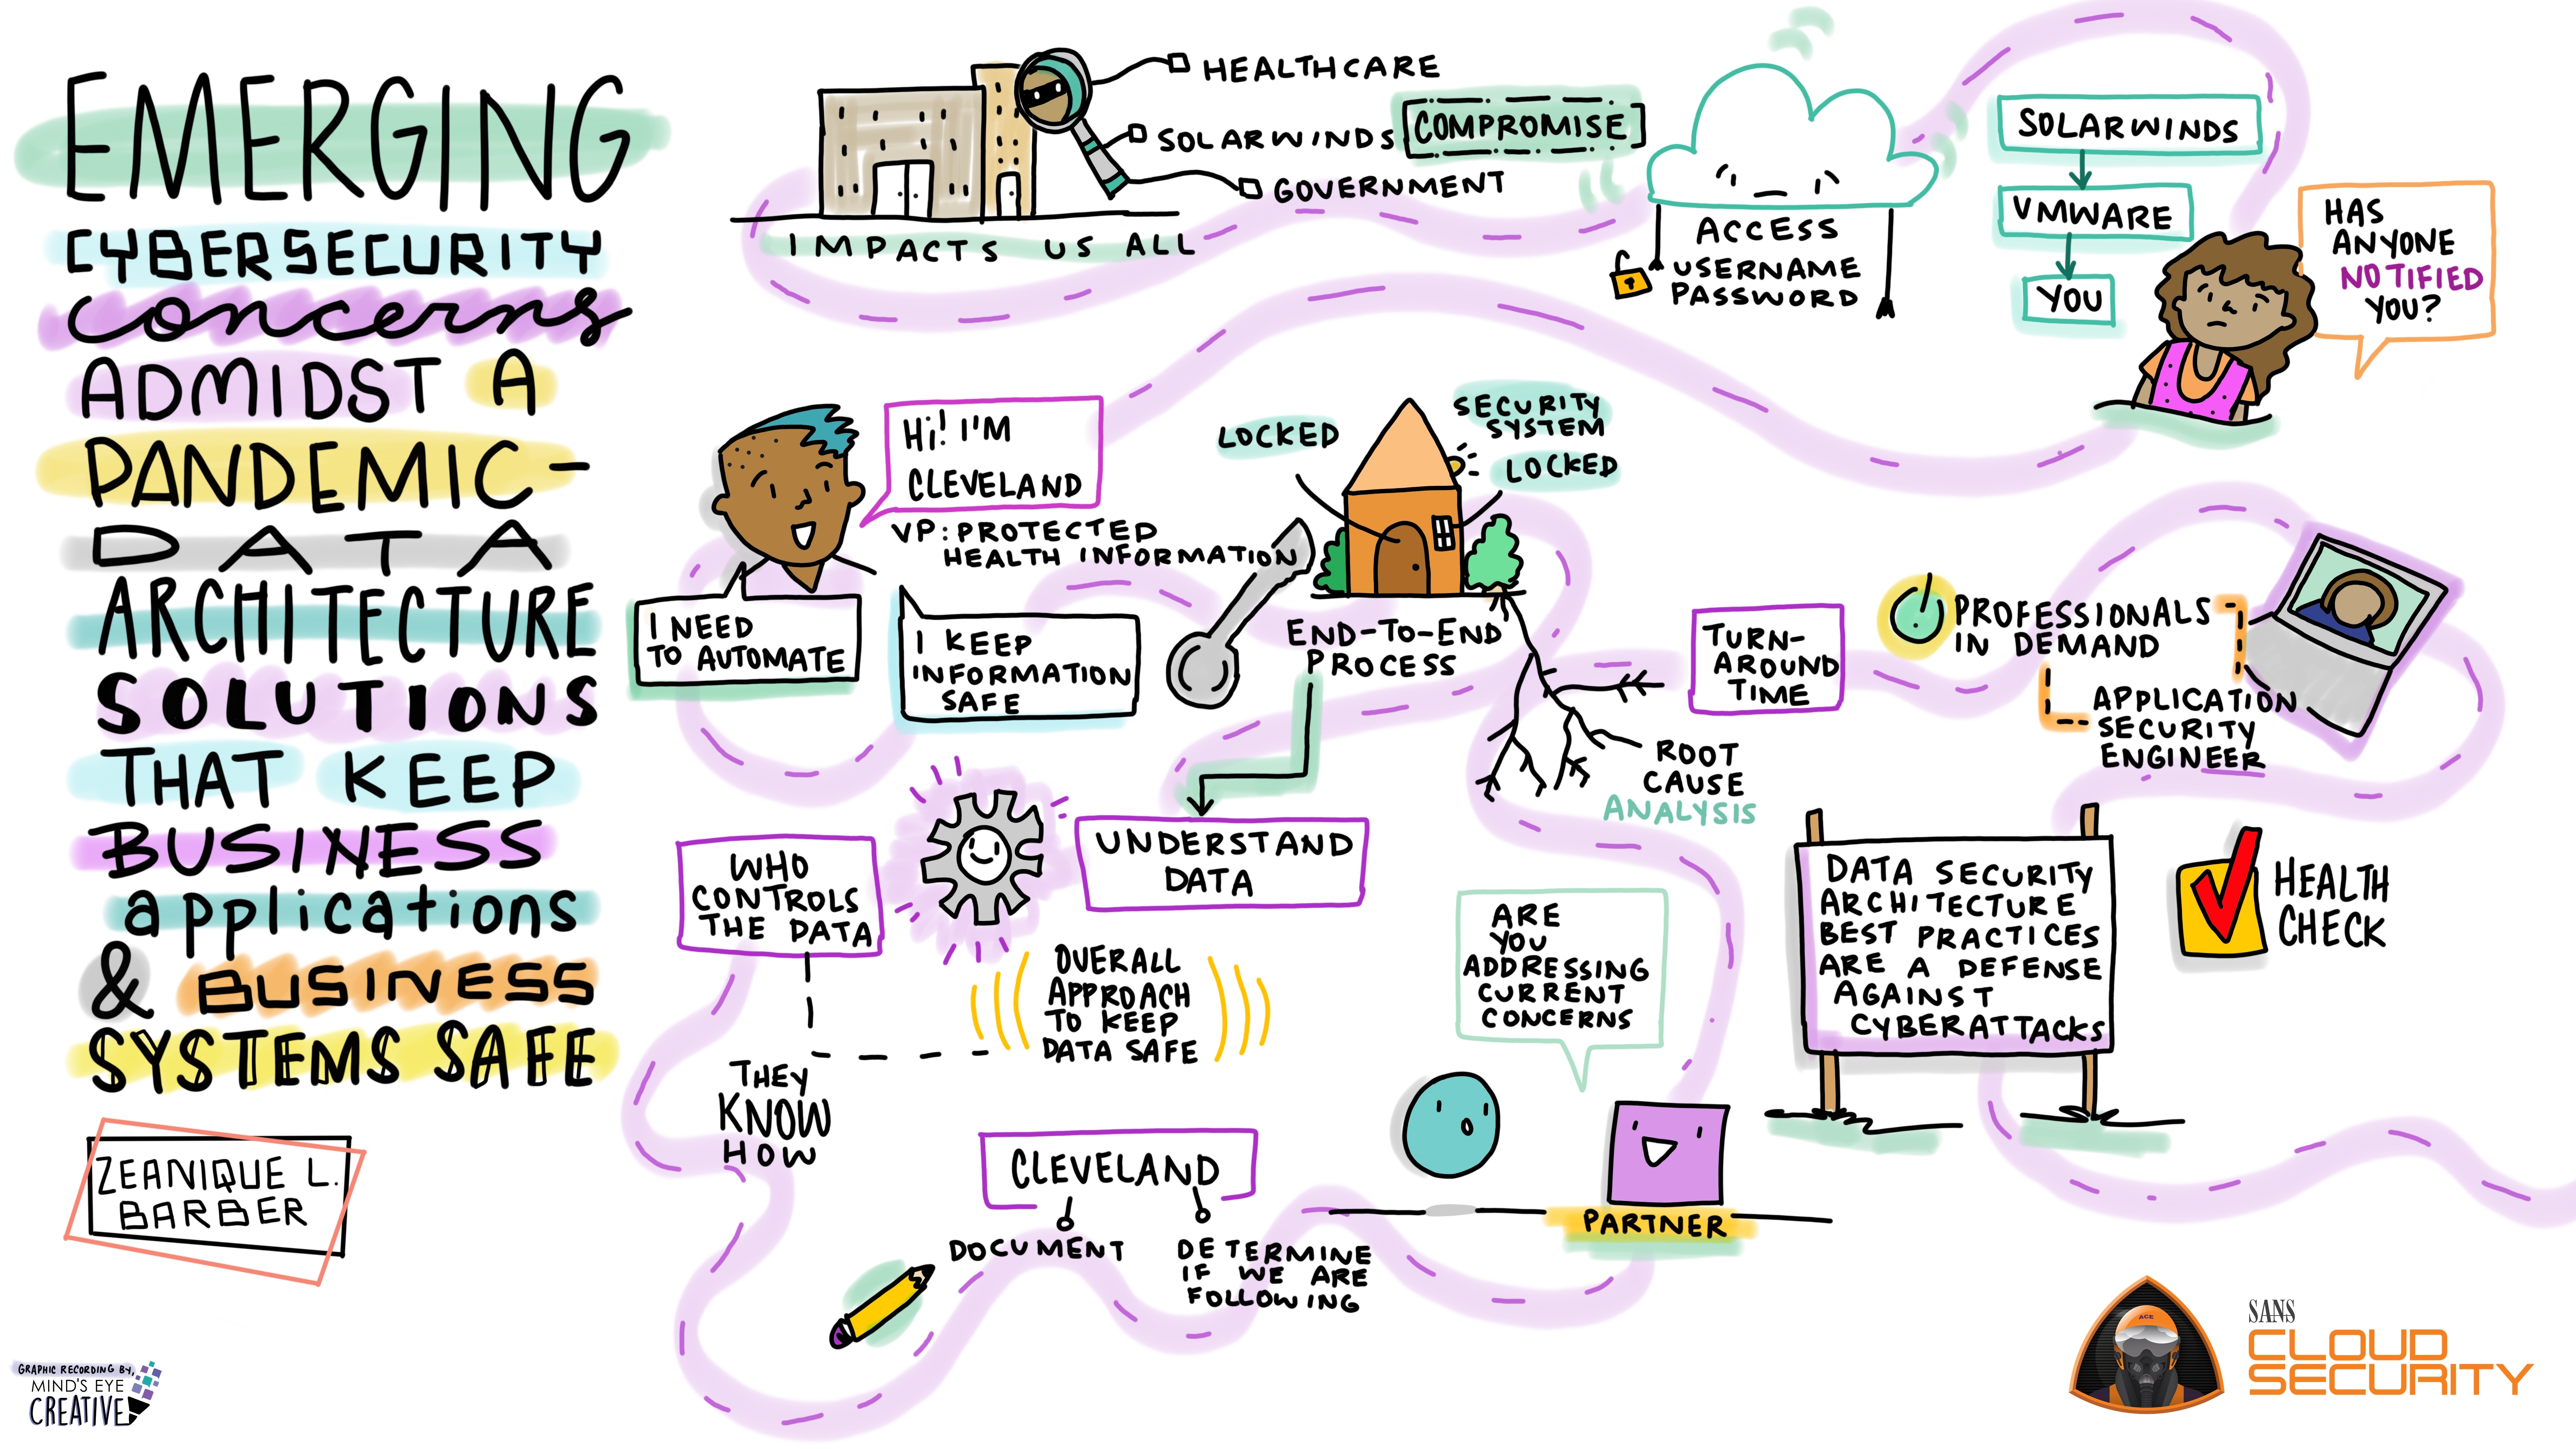 EMERGING
CYBERSECURITY
concerns
ADMIDST A
PANDEMIC-
DATA
ARCHITECTURE
SOLUTIONS
THAT KEEP
BUSINESS
applications
& BUSINESS
SYSTEMS SAFE
ZEANIQUE L.
BARBER
GRAPHIC RECORDING BY,
MIND'S EYE
CREATIVE
HEALTHCARE
SOLARWINDS COMPROMISE
GOVERNMENT
IMPACTS US ALL
ACCESS
USERNAME
PASSWORD
SOLARWINDS
VMWARE
YOU
HAS
ANYONE
NOTIFIED
YOU?
Hi! I'M
CLEVELAND
VP: PROTECTED
HEALTH INFORMATION
I NEED
TO AUTOMATE
I KEEP
INFORMATION
SAFE
LOCKED
SECURITY
SYSTEM
LOCKED
END-TO-END
PROCESS
ROOT
CAUSE
ANALYSIS
TURN-
AROUND
TIME
PROFESSIONALS
IN DEMAND
APPLICATION
SECURITY
ENGINEER
WHO
CONTROLS
THE DATA
UNDERSTAND
DATA
OVERALL
APPROACH
TO KEEP
DATA SAFE
THEY
KNOW
HOW
CLEVELAND
DOCUMENT
DETERMINE
IF WE ARE
FOLLOWING
ARE
YOU
ADDRESSING
CURRENT
CONCERNS
PARTNER
DATA SECURITY
ARCHITECTURE
BEST PRACTICES
ARE A DEFENSE
AGAINST
CYBERATTACKS
HEALTH
CHECK
ACE
SANS
CLOUD
SECURITY